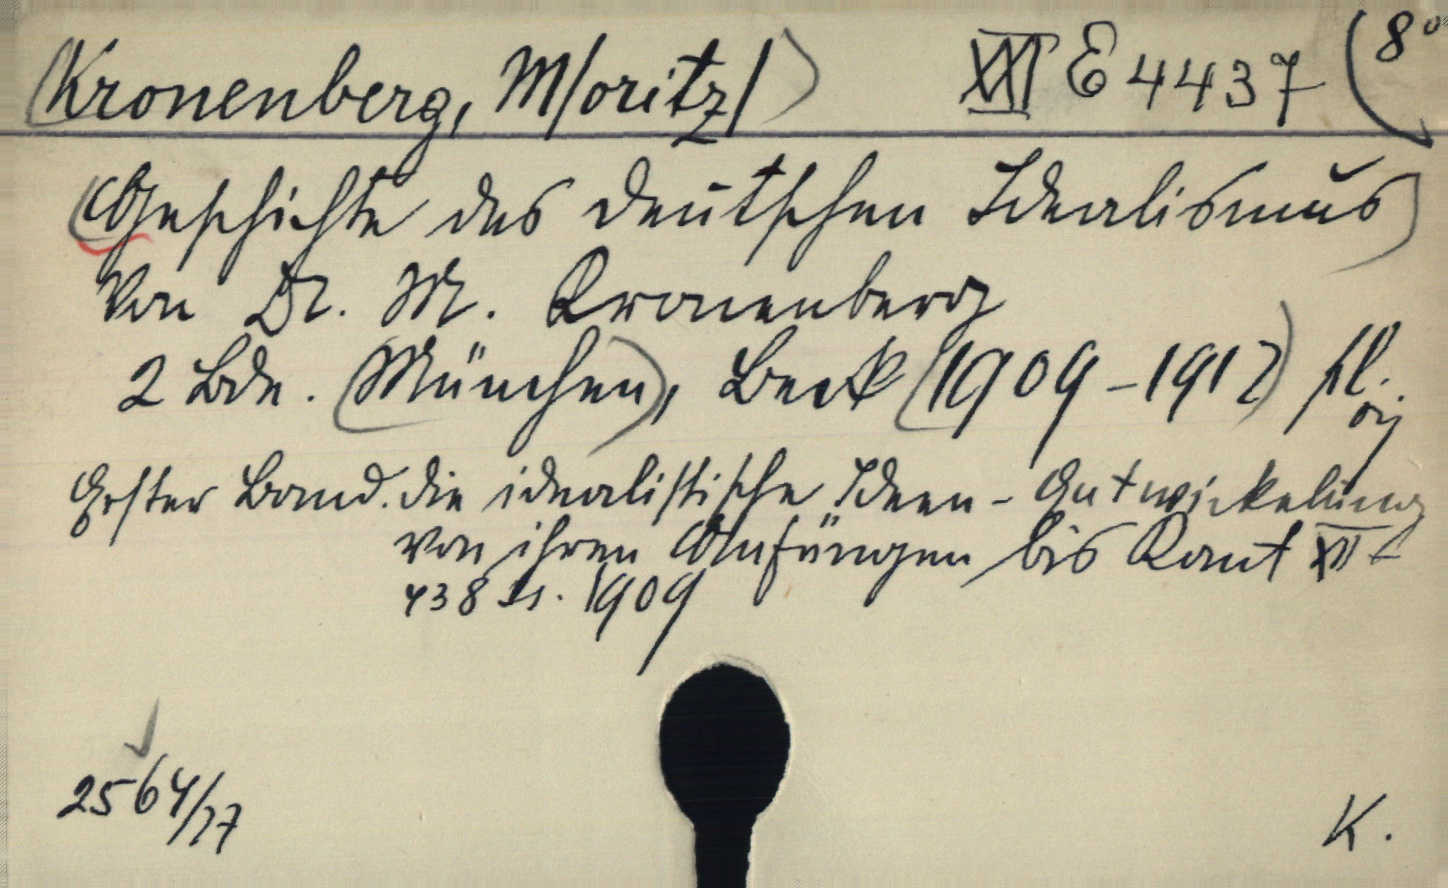 (Kronenberg, M/oritz/) XXI E 4437 (8°
(Geschichte des deutschen Idealismus)
Von Dr. M. Kronenberg
2 Bde. (München), Beck (1909-1912)
Erster Band. die idealistische Ideen-Entwickelung
von ihren Anfängen bis Kant XII +
438 SS. 1909
2564/17
K.